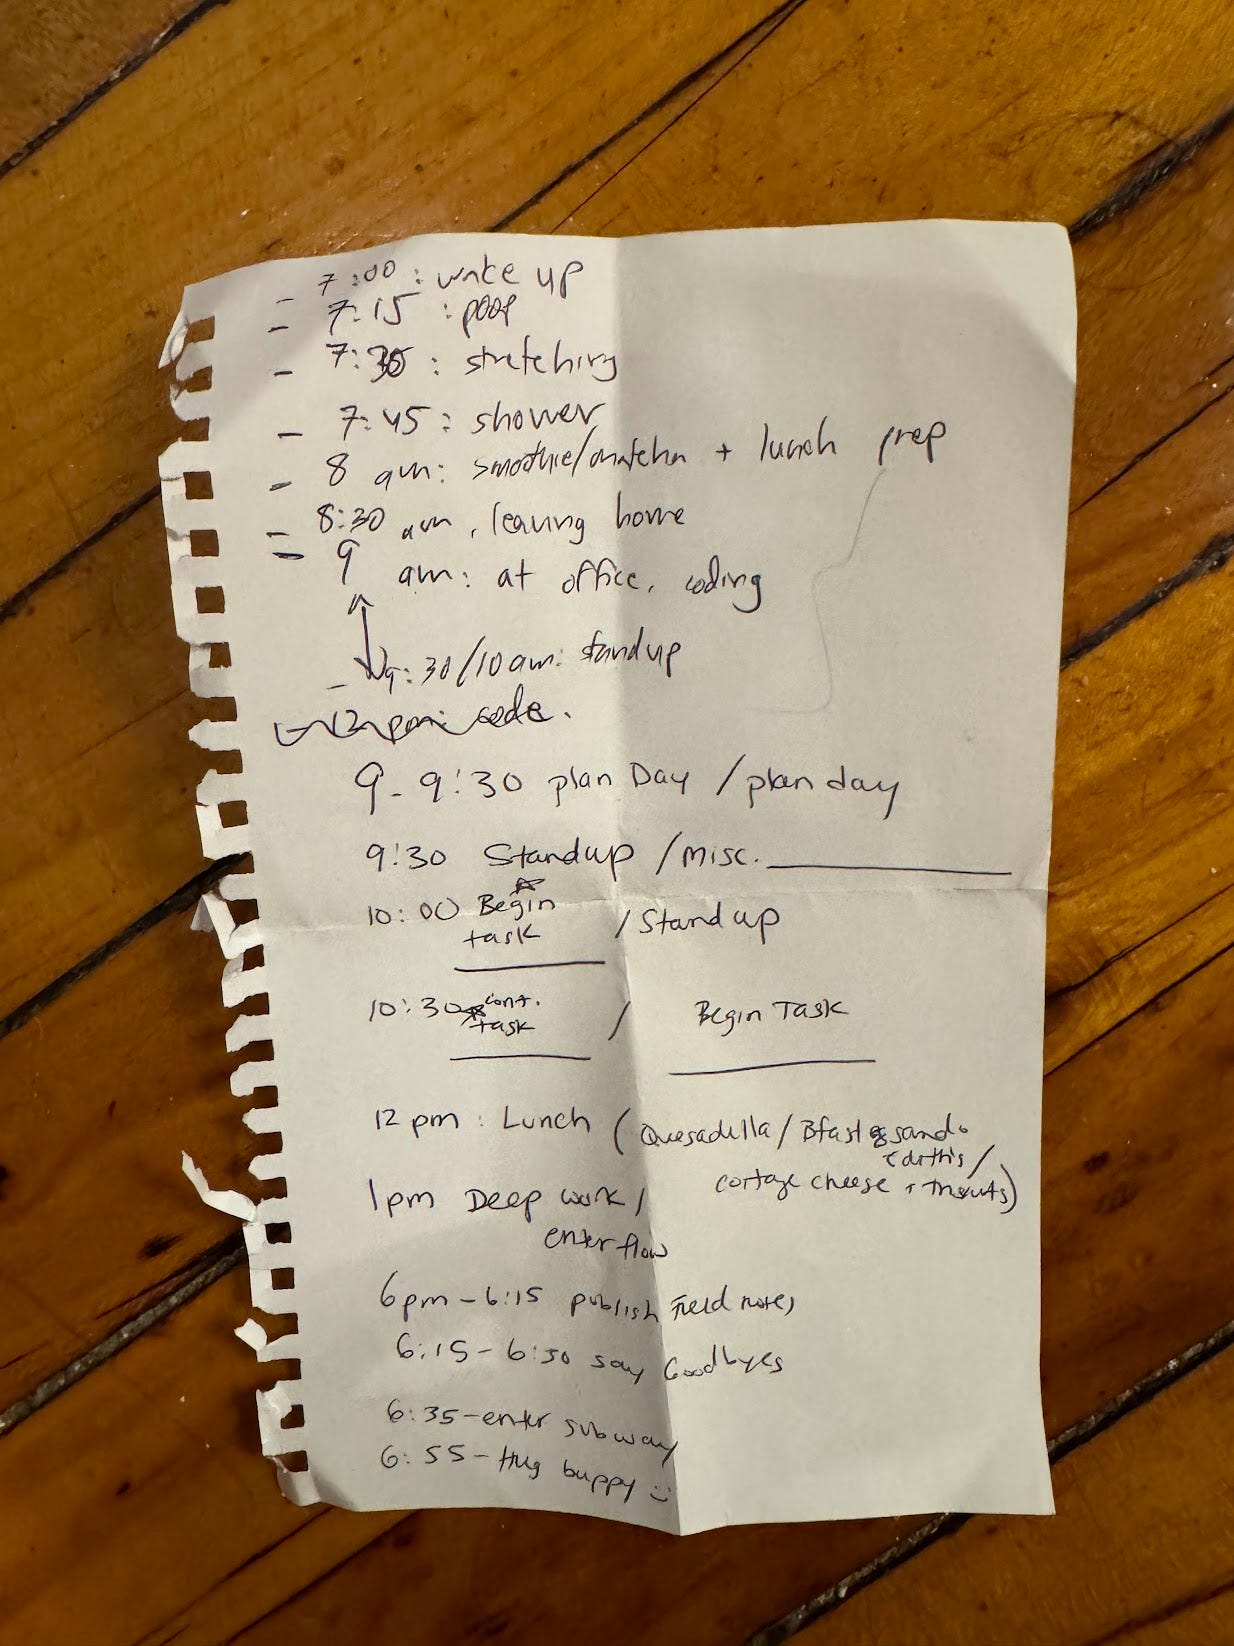 - 7:00 : wake up
- 7:15 : poop
- 7:30 : stretching
- 7:45 : shower
- 8 am: smoothie/matcha + lunch prep
- 8:30 am, leaving home
- 9 am: at office, coding
- 9:30/10 am: standup
- 12 pm: code.
9 - 9:30 plan Day / plan day
9:30 Standup / misc. ______
10:00 Begin / Stand up
task
10:30 cont. / Begin Task
task
12 pm : Lunch (Quesadilla / Bfast sando
/
cottage cheese + )
1pm Deep work /
enter flow
6pm - 6:15 publish Field notes
6:15 - 6:30 say Goodbyes
6:35 - enter subway
6:55 - Hug buppy :)